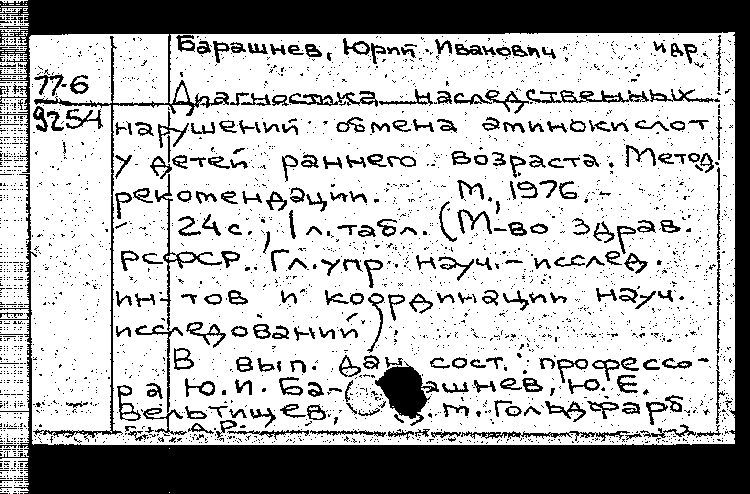 Барашнев, Юрий Иванович и др.
77-6
9254
Диагностика наследственных
нарушений обмена аминокислот
у детей раннего возраста. Метод.
рекомендации. М., 1976. -
24 с., 1 л. табл. (М-во здрав.
РСФСР. Гл. упр. науч.-исслед.
ин-тов и координации науч.
исследований).
В вып. дан сост.: профессо-
ра Ю. И. Ба- ашнев, Ю. Е.
Вельтищев, т. Гольдфарб